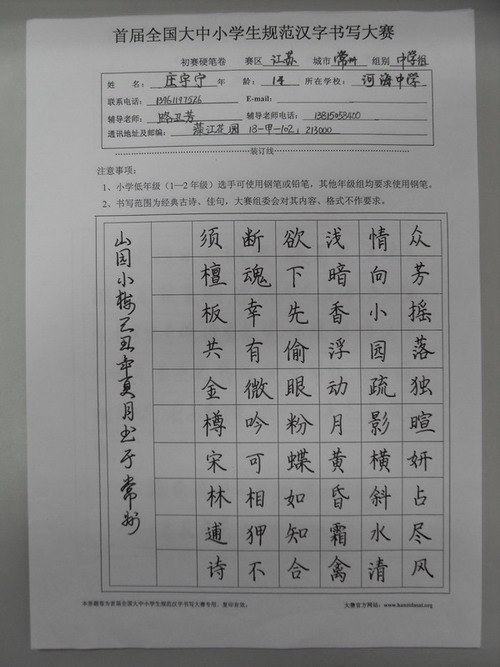 首届全国大中小学生规范汉字书写大赛
初赛硬笔卷 赛区 江苏 城市 常州 组别 中学组
姓 名: 庄宇宁 年 龄: 14 所在学校: 河海中学
联系电话: 13961197526 E-mail:
辅导老师: 路丑芳 辅导老师电话: 13815058400
通讯地址及邮编: 藻江花园 13-甲-102, 213000
装订线
注意事项:
1、小学低年级(1—2 年级)选手可使用钢笔或铅笔,其他年级组均要求使用钢笔。
2、书写范围为经典古诗、佳句,大赛组委会对其内容、格式不作要求。
众芳摇落独暄妍占尽风
情向小园疏影横斜水清
浅暗香浮动月黄昏霜禽
欲下先偷眼粉蝶如知合
断魂幸有微吟可相狎不
须檀板共金樽宋林逋诗
山园小梅己丑年夏月书于常州
本答题卷为首届全国大中小学生规范汉字书写大赛专用,复印有效。
大赛官方网站:www.hanzidasai.org